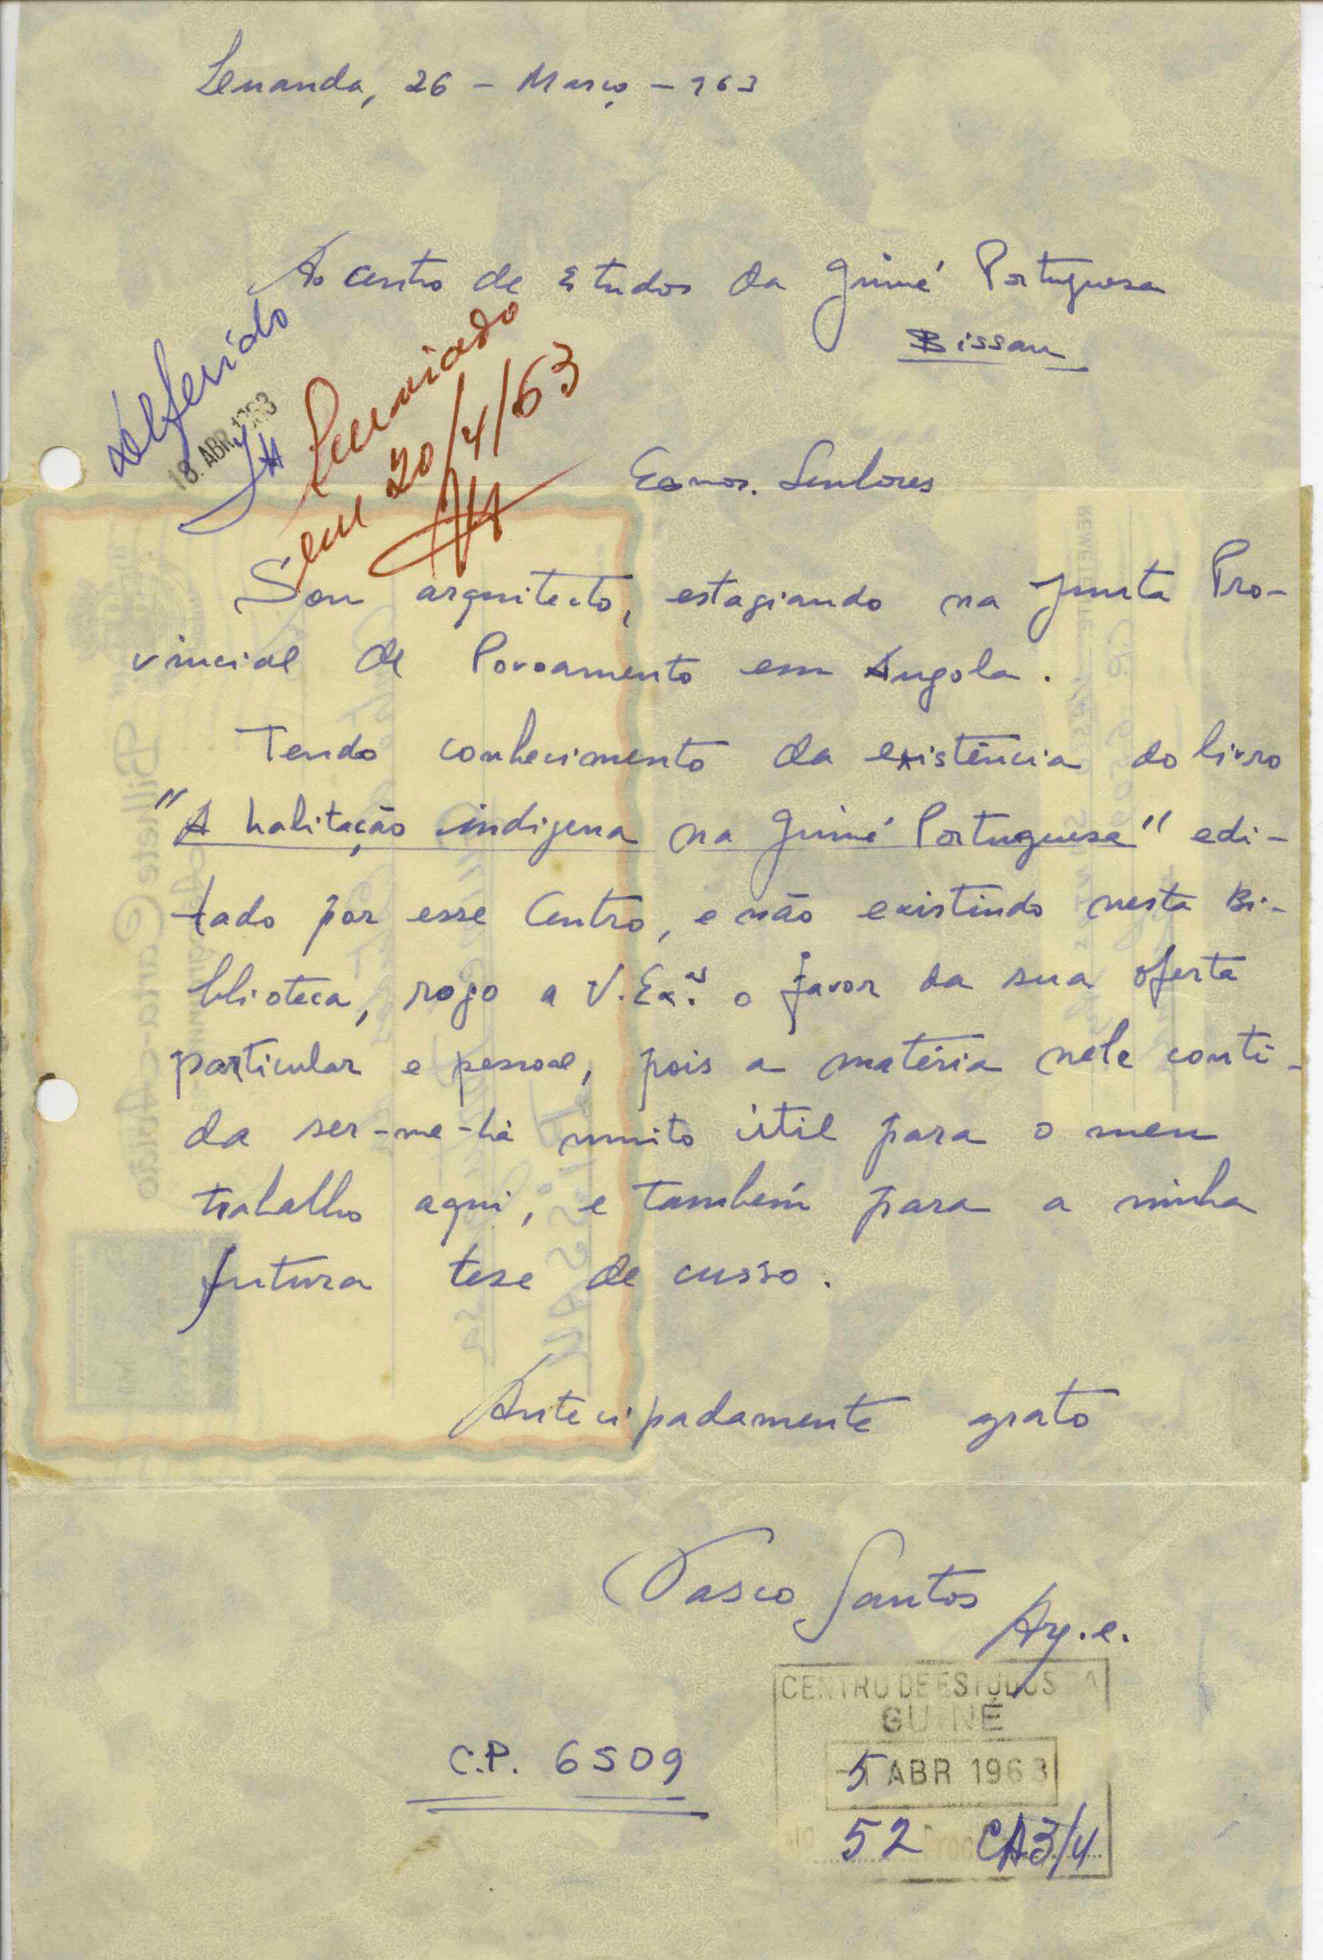 Luanda, 26 - Março - 963
Ao Centro de Estudos da Guiné Portuguesa
Bissau
deferido
18. ABR. 1963
Enviado
em 20/4/63
Exmos. Senhores
Sou arquitecto, estagiando na Junta Pro-
vincial de Povoamento em Angola.
Tendo conhecimento da existência do livro
"A habitação indígena na Guiné Portuguesa" edi-
tado por esse Centro, e não existindo nesta Bi-
blioteca, rogo a V. Exas. o favor da sua oferta
particular e pessoal, pois a matéria nele conti-
da ser-me-há muito útil para o meu
trabalho aqui, e também para a minha
futura tese de curso.
Antecipadamente grato
Vasco Santos
Arq. e.
CENTRO DE ESTUDOS DA
GUINÉ
5 ABR 1963
C.P. 6509
52 CA3/4